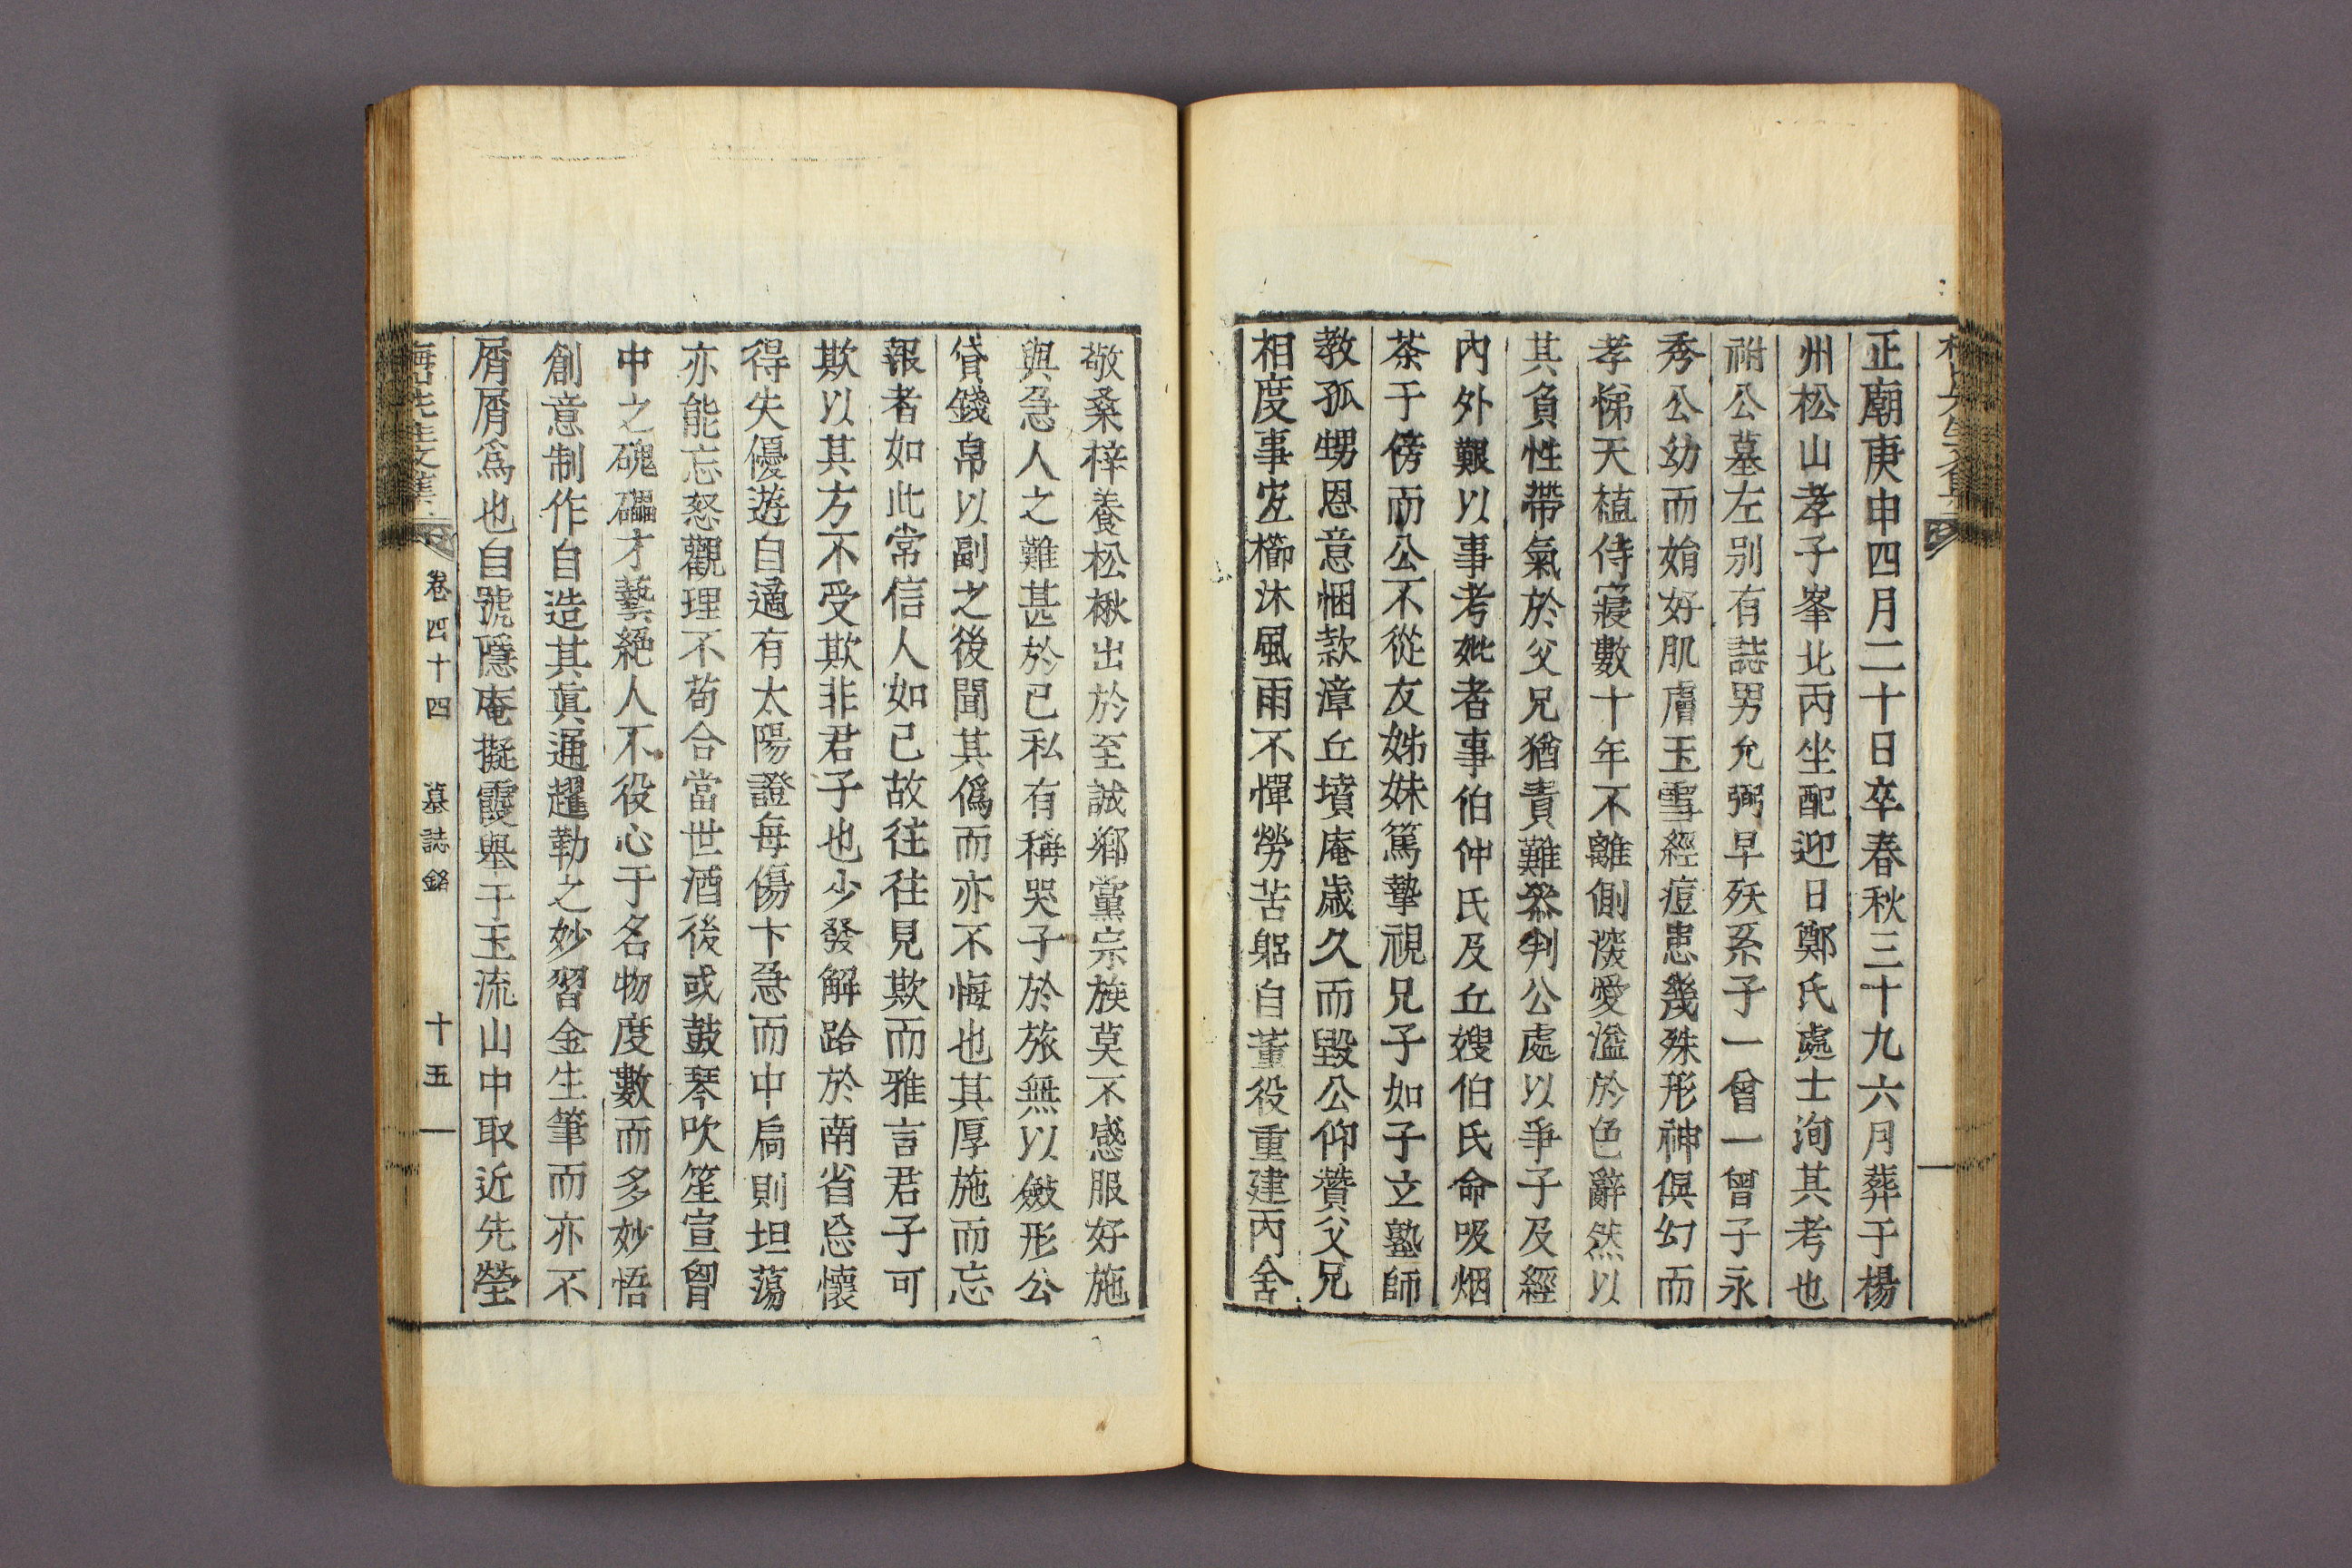 正廟庚申四月二十日卒春秋三十九六月葬于楊
州松山孝子峯北丙坐配迎日鄭氏處士洵其考也
祔公墓左别有誌男允弼早殀系子一曾一曾子永
秀公幼而娟好肌膚玉雪經痘患幾殊形神俱幻而
孝悌天植侍寢數十年不離側湥愛溢於色辭然以
其負性帶氣於父兄猶責難叅判公處以爭子及經
內外艱以事考妣者事伯仲氏及丘嫂伯氏命吸烟
茶于傍而公不從友姊妹篤摯視兄子如子立塾師
教孤甥恩意悃款漳丘墳庵歲久而毀公仰贊父兄
相度事宜櫛沐風雨不憚勞苦躬自董役重建丙舍
敬桑梓養松楸出於至誠鄉黨宗族莫不感服好施
與急人之難甚於已私有稱哭子於旅無以斂形公
貸錢帛以副之後聞其僞而亦不悔也其厚施而忘
報者如此常信人如己故往往見欺而雅言君子可
欺以其方不受欺非君子也少發解跲於南省忘懷
得失優遊自適有太陽證每傷卞急而中扃則坦蕩
亦能忘怒觀理不苟合當世酒後或鼓琴吹笙宣胷
中之磈礧才藝絕人不役心于名物度數而多妙悟
創意制作自造其眞通趯勒之妙習金生筆而亦不
屑屑爲也自號隱庵擬霞擧于玉流山中取近先塋
卷四十四 墓誌銘 十五